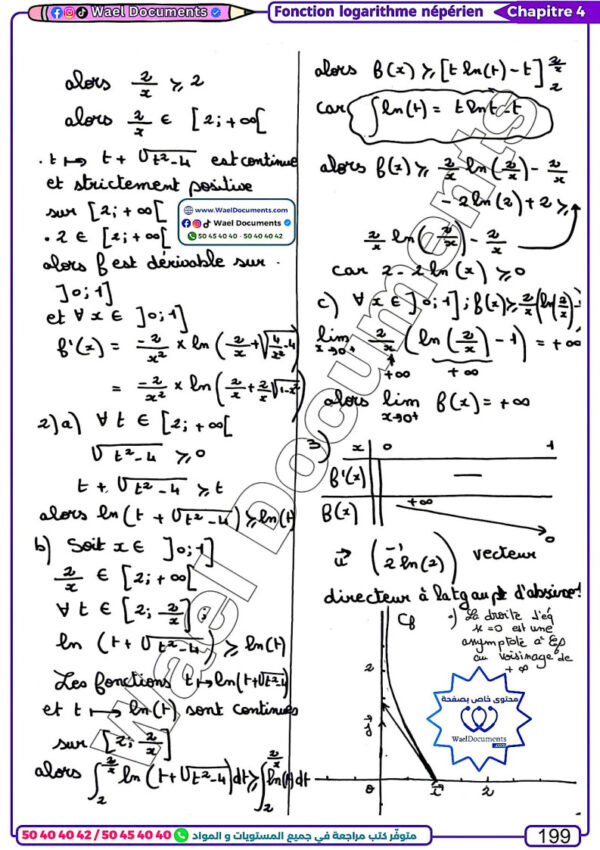 Wael Documents
Fonction logarithme népérien
Chapitre 4
alors 2/x ⩾ 2
alors 2/x ∈ [2; +∞[
. t ↦ t + √(t²-4) est continue
et strictement positive
sur [2; +∞[
. 2 ∈ [2; +∞[
alors f est dérivable sur
]0;1]
et ∀ x ∈ ]0;1]
f'(x) = -2/x² × ln(2/x + √(4/x² - 4))
= -2/x² × ln(2/x + 2/x √(1-x²))
2) a) ∀ t ∈ [2; +∞[
√(t²-4) ⩾ 0
t + √(t²-4) ⩾ t
alors ln(t + √(t²-4)) ⩾ ln(t)
b) Soit x ∈ ]0;1]
2/x ∈ [2; +∞[
∀ t ∈ [2; 2/x];
ln(t + √(t²-4)) ⩾ ln(t)
Les fonctions t ↦ ln(t+√(t²-4))
et t ↦ ln(t) sont continues
sur [2; 2/x]
alors ∫₂^(2/x) ln(t+√(t²-4))dt ⩾ ∫₂^(2/x) ln(t)dt
www.WaelDocuments.com
Wael Documents
50 45 40 40 - 50 40 40 42
alors f(x) ⩾ [t ln(t) - t]₂^(2/x)
car ∫ln(t) = t ln t - t
alors f(x) ⩾ 2/x ln(2/x) - 2/x
- 2ln(2) + 2 ⩾
2/x ln(2/x) - 2/x
car 2 - 2 ln(x) ⩾ 0
c) ∀ x ∈ ]0;1]; f(x) ⩾ 2/x (ln(2/x) -
lim x→0⁺ 2/x (ln(2/x) - 1) = +∞
+∞ +∞
alors lim x→0⁺ f(x) = +∞
3)
x 0 1
f'(x) —
f(x) +∞ 0
u⃗ (-1 2ln(2)) vecteur
directeur à la tg au pt d'abscisse 1
Cf
.) La droite d'éq
x = 0 est une
asymptote à Cf
au voisinage de
+∞
2
j⃗
0 i⃗ 2
محتوى خاص بصفحة
WaelDocuments
.com
Wael Documents
50 40 40 42 / 50 45 40 40 متوفّر كتب مراجعة في جميع المستويات و المواد
199